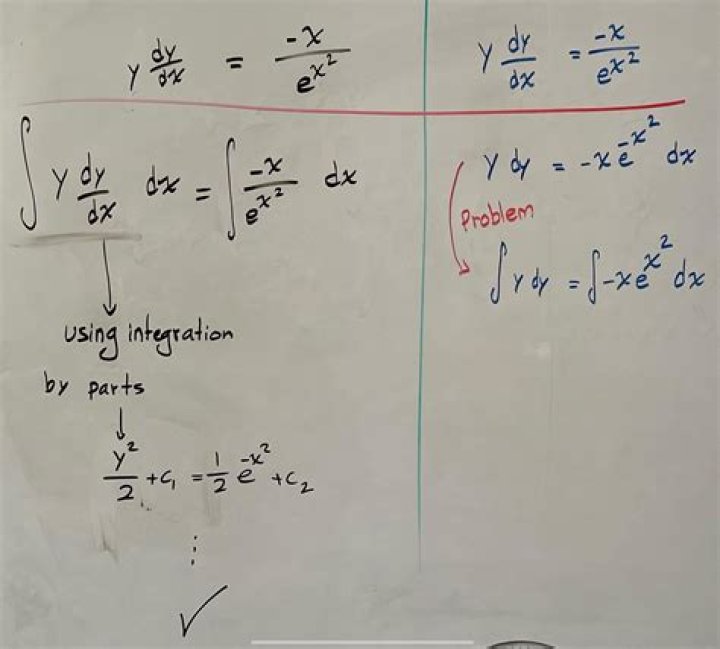 y dy/dx = -x/e^x²
∫ y dy/dx dx = ∫ -x/e^x² dx
using integration
by parts
y²/2 + c₁ = 1/2 e^-x² + c₂
⋮
✓
y dy/dx = -x/e^x²
y dy = -x e^-x² dx
Problem
∫ y dy = ∫ -x e^x² dx